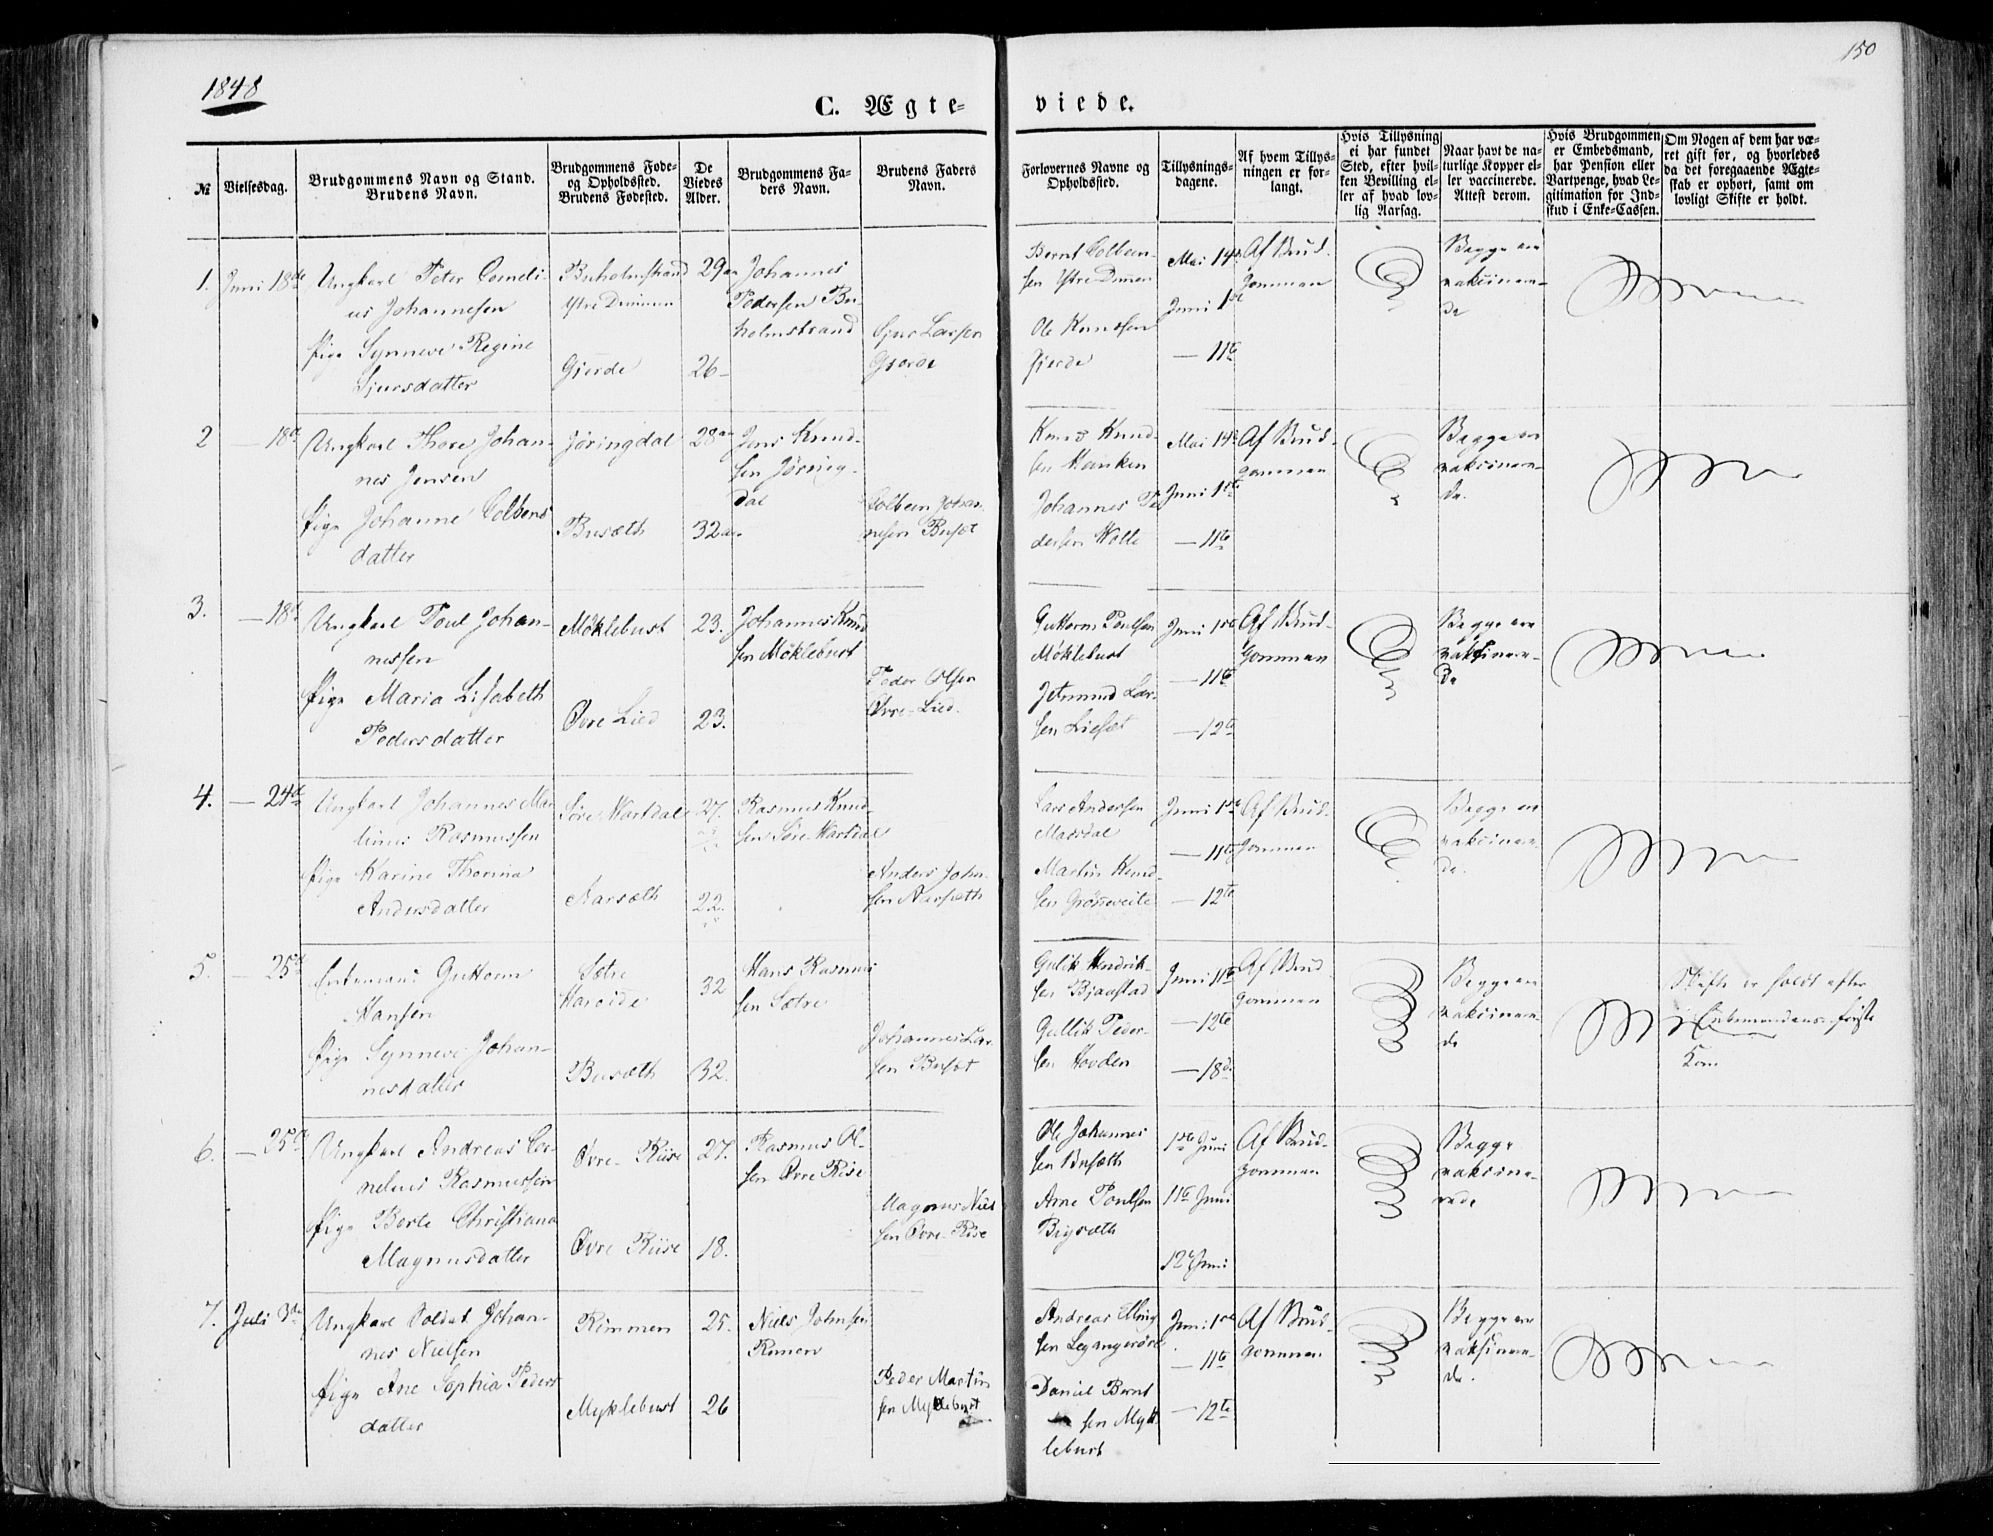 1848
150
C. Ægte=
viede.
№
Vielsesdag.
Brudgommens Navn og Stand.
Brudens Navn.
Brudgommens Føde=
og Opholdssted.
Brudens Fødested.
De
Viedes
Alder.
Brudgommens Fa=
ders Navn.
Brudens Faders
Navn.
Forlovernes Navne og
Opholdssted.
Tillysnings=
dagene.
Af hvem Tillys=
ningen er for=
langt.
Hvis Tillysning
ei har fundet
Sted, efter hvil=
ken Bevilling el=
ler af hvad lov=
lig Aarsag.
Naar havt de na=
turlige Kopper el=
ler vaccinerede.
Attest derom.
Hvis Brudgommen
er Embedsmand,
har Pension eller
Vartpenge, hvad Le=
gitimation for Ind=
skud i Enke=Cassen.
Om Nogen af dem har væ=
ret gift før, og hvorledes
da det foregaaende Ægte=
skab er ophørt, samt om
lovligt Skifte er holdt.
1. Juni 18de
Ungkarl Peter Corneli-
us Johannesen
Pige Synneve Regine
Sjursdatter
Buholmstrand
Ystre Dimmen
Gjerde
29
26
Johannes
Pedersen Bu-
holmstrand
Sjur Larsen
Gjerde
Bernt Colbein-
sen Ystre Dimen
Ole Knudsen
Gjerde
Mai 14de
Juni 1ste
— 11te
Af Brud-
gommen
Begge ere
vaksineere-
de
2 — 18de
Ungkarl Thore Johan-
nes Jensen
Pige Johanne Colbens
datter
Jøringdal
Busæth
28
32
Jens Knud-
sen Jøring-
dal
Colbein Johan-
nesen Busæt
Knud Knud-
sen Hanken
Johannes Pe-
dersen Walle
Mai 14de
Juni 1ste
— 11te
Af Brud-
gommen
Begge ere
vaksineere-
de.
3. — 18de
Ungkarl Poul Johan-
nessen
Pige Maria Lisabeth
Pedersdatter
Møklebust
Øvre Lied
23.
23.
Johannes Knud
sen Møklebust
Peder Olsen
Øvre-Lied.
Guttorm Poulsen
Møklebust
Jetmund Lar-
sen Liesæt
Juni 1ste
— 11te
— 12te
Af Brud-
gommen
Begge ere
vaksineere-
de
4. — 24de
Ungkarl Johannes Mar
tinus Rasmussen
Pige Karine Thorina
Andersdatter
Søre Wartdal
Aarsæth
27.
22.
Rasmus Knud-
sen Søre Wartdal
Anders John-
sen Aarsæth
Lars Andersen
Masdal
Martin Knud-
sen Grønneveite
Juni 1ste
— 11te
— 12te
Af Brud-
gommen
Begge ere
vaksineere-
de.
5. — 25de
Enkemand Guttorm
Hansen
Pige Synneve Johan-
nesdatter
Sætre
Hareide
Busæth
32
32.
Hans Rasmus
sen Sætre
Johannes Lar-
sen Busæt
Gulik Hendrik-
sen Bjaastad
Gullik Peder-
sen Hovden
Juni 11te
— 12te
— 18de
Af Brud-
gommen
Begge ere
vaksineere-
de
Skifte er holdt efter
Enkemandens første
Kone
6. — 25de
Ungkarl Andreas Cor-
nelius Rasmussen
Pige Berte Christiana
Magnusdatter
Øvre-Riise
Øvre Riise
27.
18.
Rasmus Ol-
sen Øvre Rise
Magnus Niel
sen Øvre-Rise
Ole Johannes
sen Busæth
Arne Poulsen
Bigsæth
1ste Juni
11te Juni
12te Juni
Af Brud-
gommen
Begge
vaksine-
rede
7. Juli 3die
Ungkarl Soldat Johan-
nes Nielsen
Pige Ane Sophia Peders
datter
Rimmen
Myklebust
25.
26
Niels Johnsen
Rimen
Peder Martin
sen Myklebust
Andreas Elling
sen Leganger
Daniel Bernt
sen Myk-
lebust
Juni 1ste
— 11te
— 12te
Af Brud-
gommen
Begge ere
vaksineere-
de.